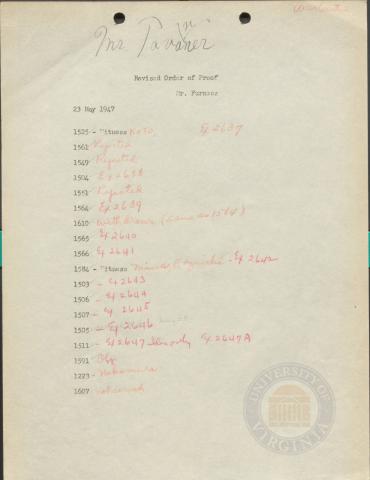 Mr. Tavaner
Revised Order of Proof
Mr. Furness
23 May 1947
1525 - Witness KATO, Ex 2637
1561 Rejected
1549 Rejected
1504 Ex 2638
1551 Rejected
1564 Ex 2639
1610 Withdrawn (same as 1584)
1565 Ex 2640
1566 Ex 2641
1584 - Witness - Ex 2642
1503 - Ex 2643
1506 - Ex 2644
1507 - Ex 2645
1505 - Ex 2646
1511 - Ex 2647 Ex 2647A
1591
1223 - Nakamura
1607 Withdrawn
UNIVERSITY OF VIRGINIA